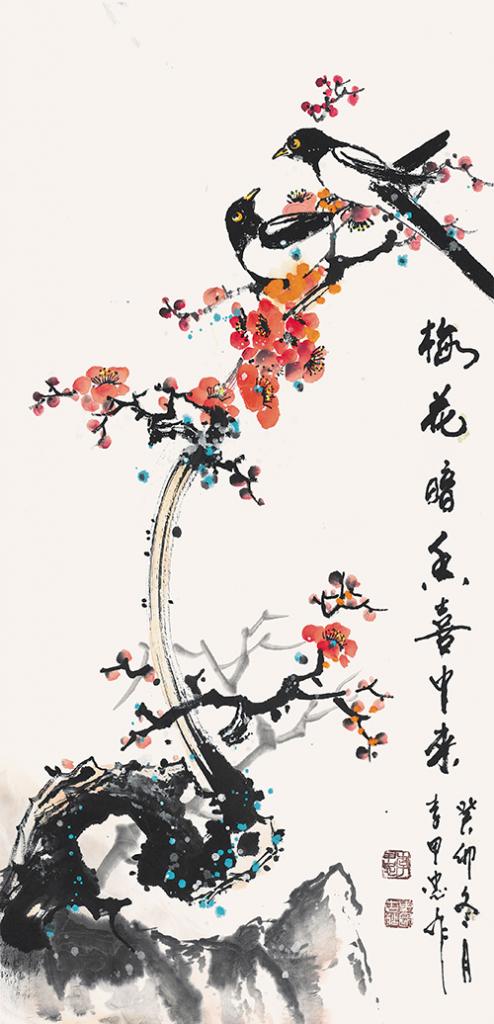 梅花暗香喜中来
癸卯冬月
李甲忠作